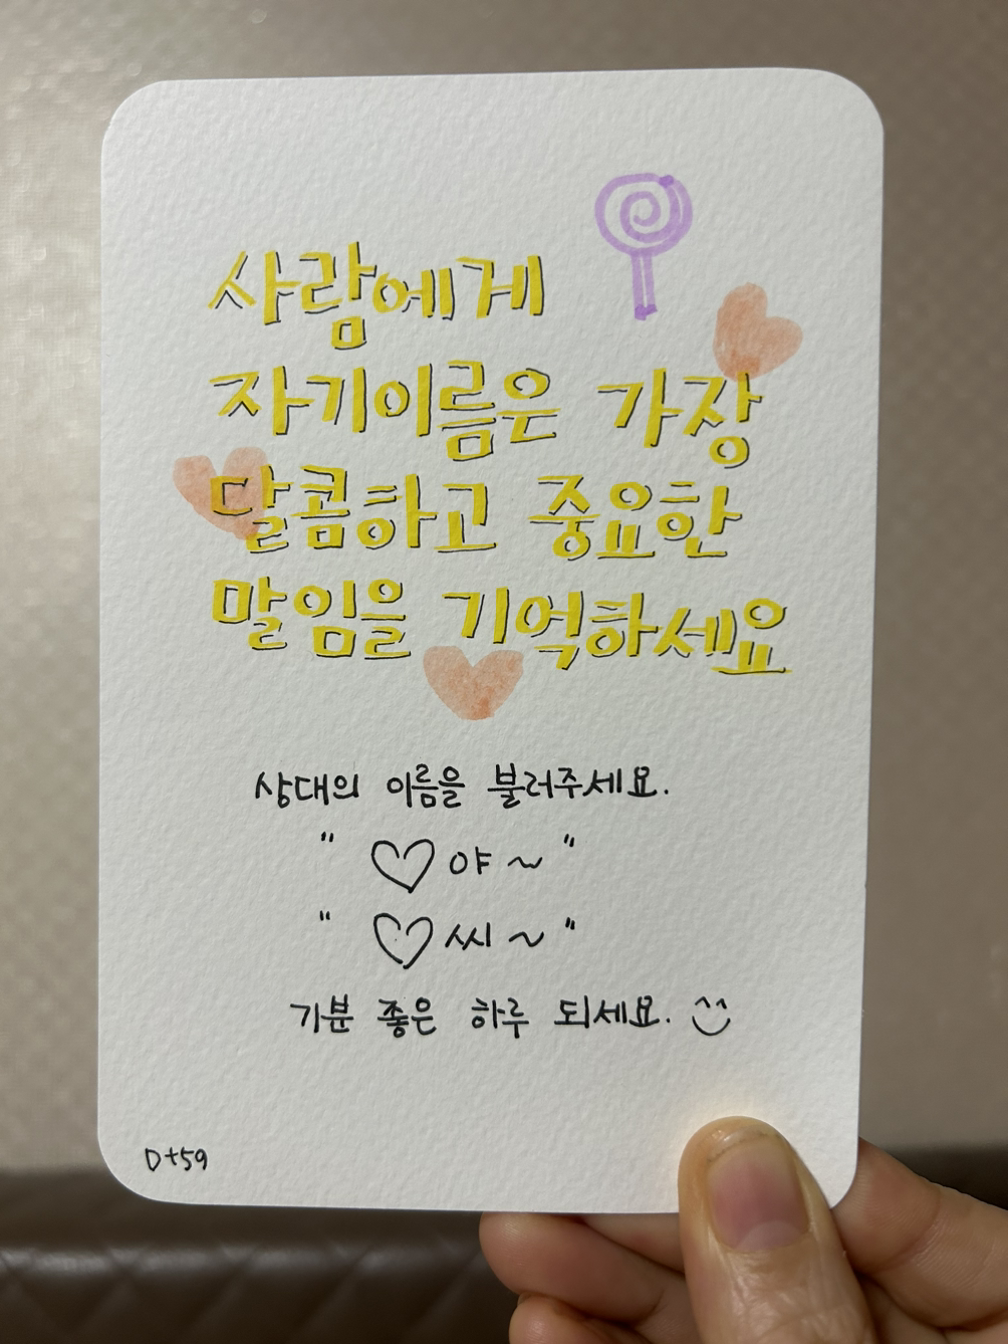 사람에게
자기이름은 가장
달콤하고 중요한
말임을 기억하세요
상대의 이름을 불러주세요.
"♡야~"
"♡씨~"
기분 좋은 하루 되세요. ^^
D+59